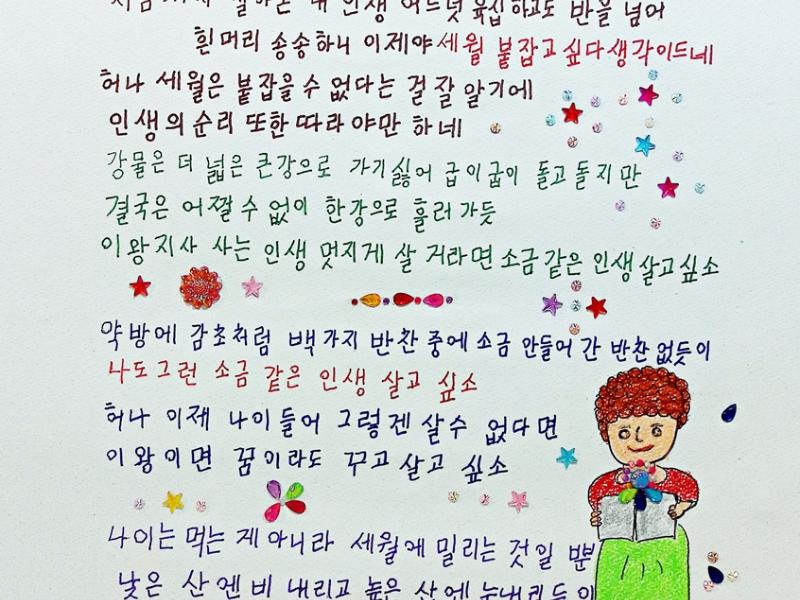 지금까지 살아온 내 인생 어느덧 육십하고도 반을 넘어
흰머리 송송하니 이제야 세월 붙잡고 싶다 생각이 드네
허나 세월은 붙잡을 수 없다는 걸 잘 알기에
인생의 순리 또한 따라야만 하네
강물은 더 넓은 큰강으로 가기싫어 굽이굽이 돌고돌지만
결국은 어쩔 수 없이 한강으로 흘러 가듯
이왕지사 사는 인생 멋지게 살 거라면 소금같은 인생살고싶소
약방에 감초처럼 백가지 반찬 중에 소금 안들어 간 반찬 없듯이
나도 그런 소금 같은 인생 살고 싶소
허나 이제 나이들어 그렇겐 살수 없다면
이왕이면 꿈이라도 꾸고 살고 싶소
나이는 먹는 게 아니라 세월에 밀리는 것일 뿐
낮은 산엔 비 내리고 높은 산엔 눈내리듯이